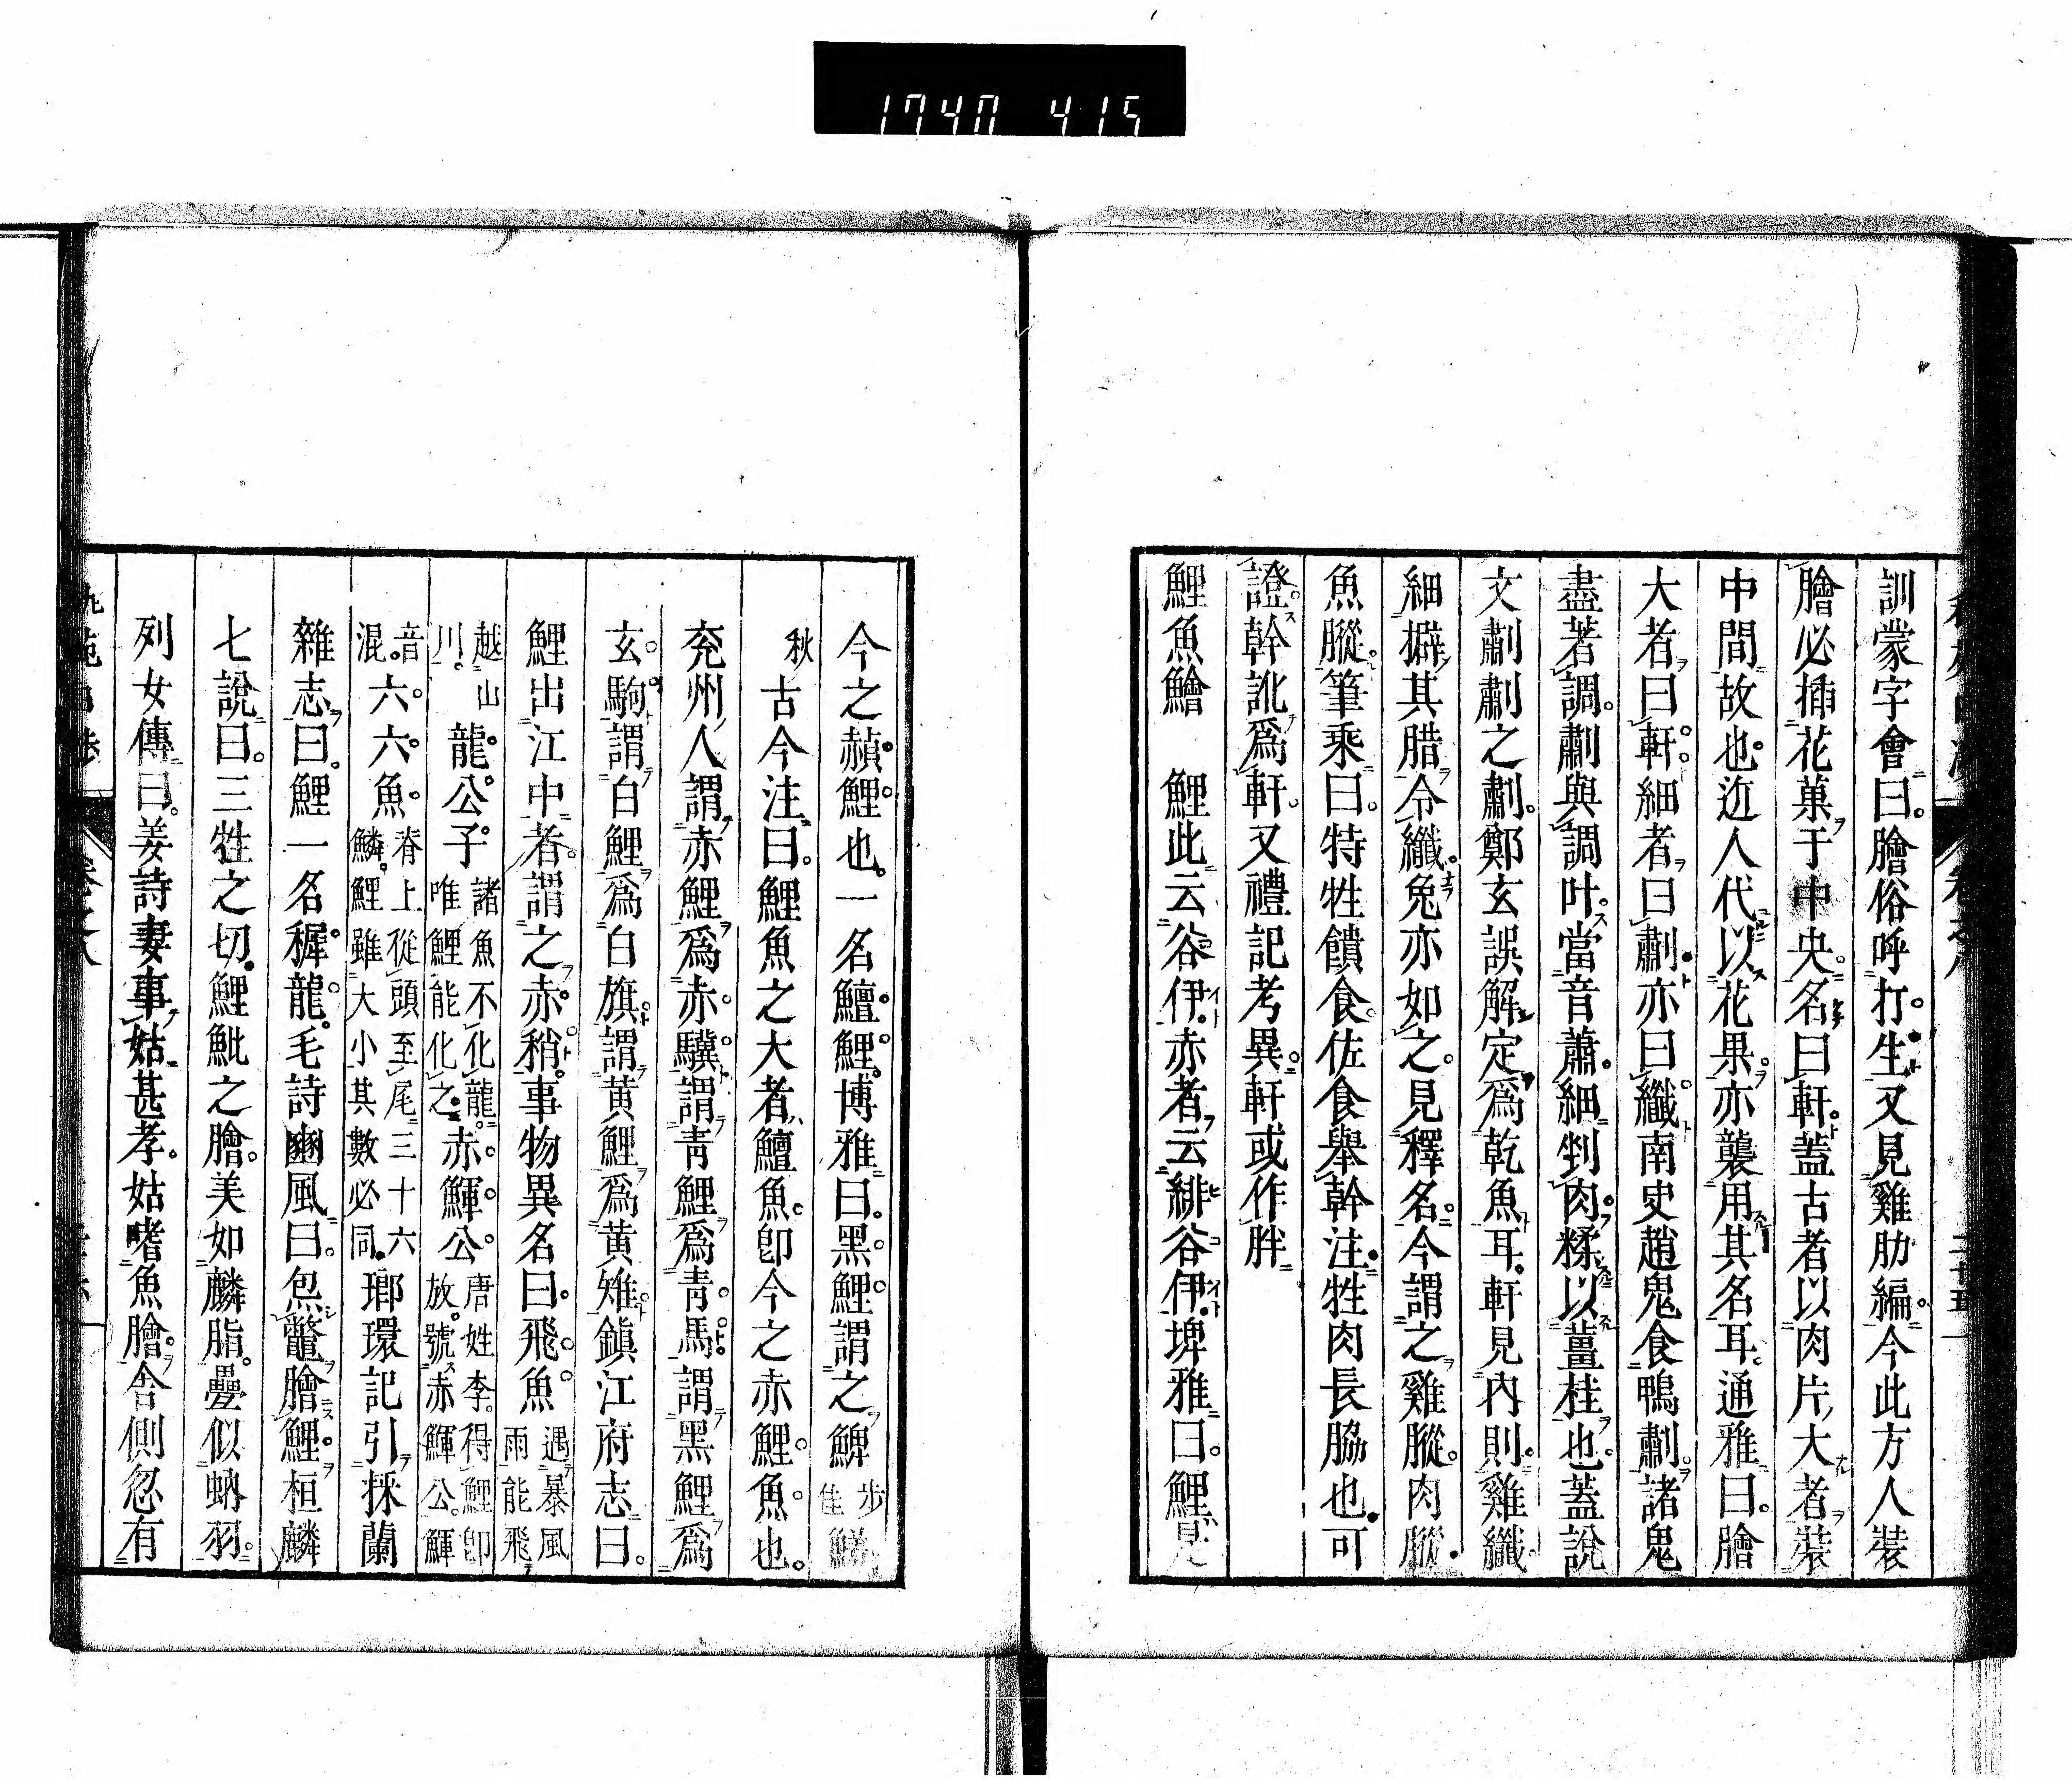 1740 415
訓蒙字會曰。膾俗呼打生又見雞肋編。今此方人裝
膾必插花菓于中央。名曰軒。蓋古者以肉片大者裝
中間故也。近人代以花果。亦襲用其名耳。通雅曰。膾
大者曰軒。細者曰劀亦曰纖南史趙鬼食鴨劀。諸鬼
盡著調。劀與調叶。當音蕭。細判肉。糅以薑桂也。蓋說
文劀劀之劀。鄭玄誤解定爲乾魚耳。軒見內則。雞纖。
細擗其腊令纖。兔亦如之。見釋名。今謂之雞膎。肉膎。
魚膎。筆乘曰。特牲饋食。佐食舉幹注。牲肉長脇也。可
證。幹訛爲軒。又禮記考異。軒或作胖
鯉魚鱠　鯉此云谷伊。赤者云緋谷伊。埤雅曰。鯉
今之赬鯉。也。一名鱣鯉。博雅曰。黑鯉。謂之鯶
秋 古今注曰。鯉魚之大者鱣魚。卽今之赤鯉。魚。也。
兗州人謂赤鯉爲赤驥。謂靑鯉爲靑馬。謂黑鯉爲
玄駒。謂白鯉爲白旗。謂黃鯉爲黃雉。鎭江府志曰。
鯉出江中者。謂之赤稍。事物異名曰。飛魚。遇暴風雨能飛
越山川。龍公子。諸魚不化龍。唯鯉能化之。赤鯶公。唐姓李。得鯉卽放。號赤鯶公。鯶
音混。六六魚。脊上從頭至尾三十六鱗。鯉雖大小其數必同。瑯環記引採蘭
雜志。曰。鯉一名穉龍。毛詩豳風曰。炰鼈膾鯉。桓麟
七說曰。三牲之切。鯉魮之膾。美如麟脂。疊似蚋羽。
列女傳曰。姜詩妻事姑甚孝。姑嗜魚膾。舍側忽有